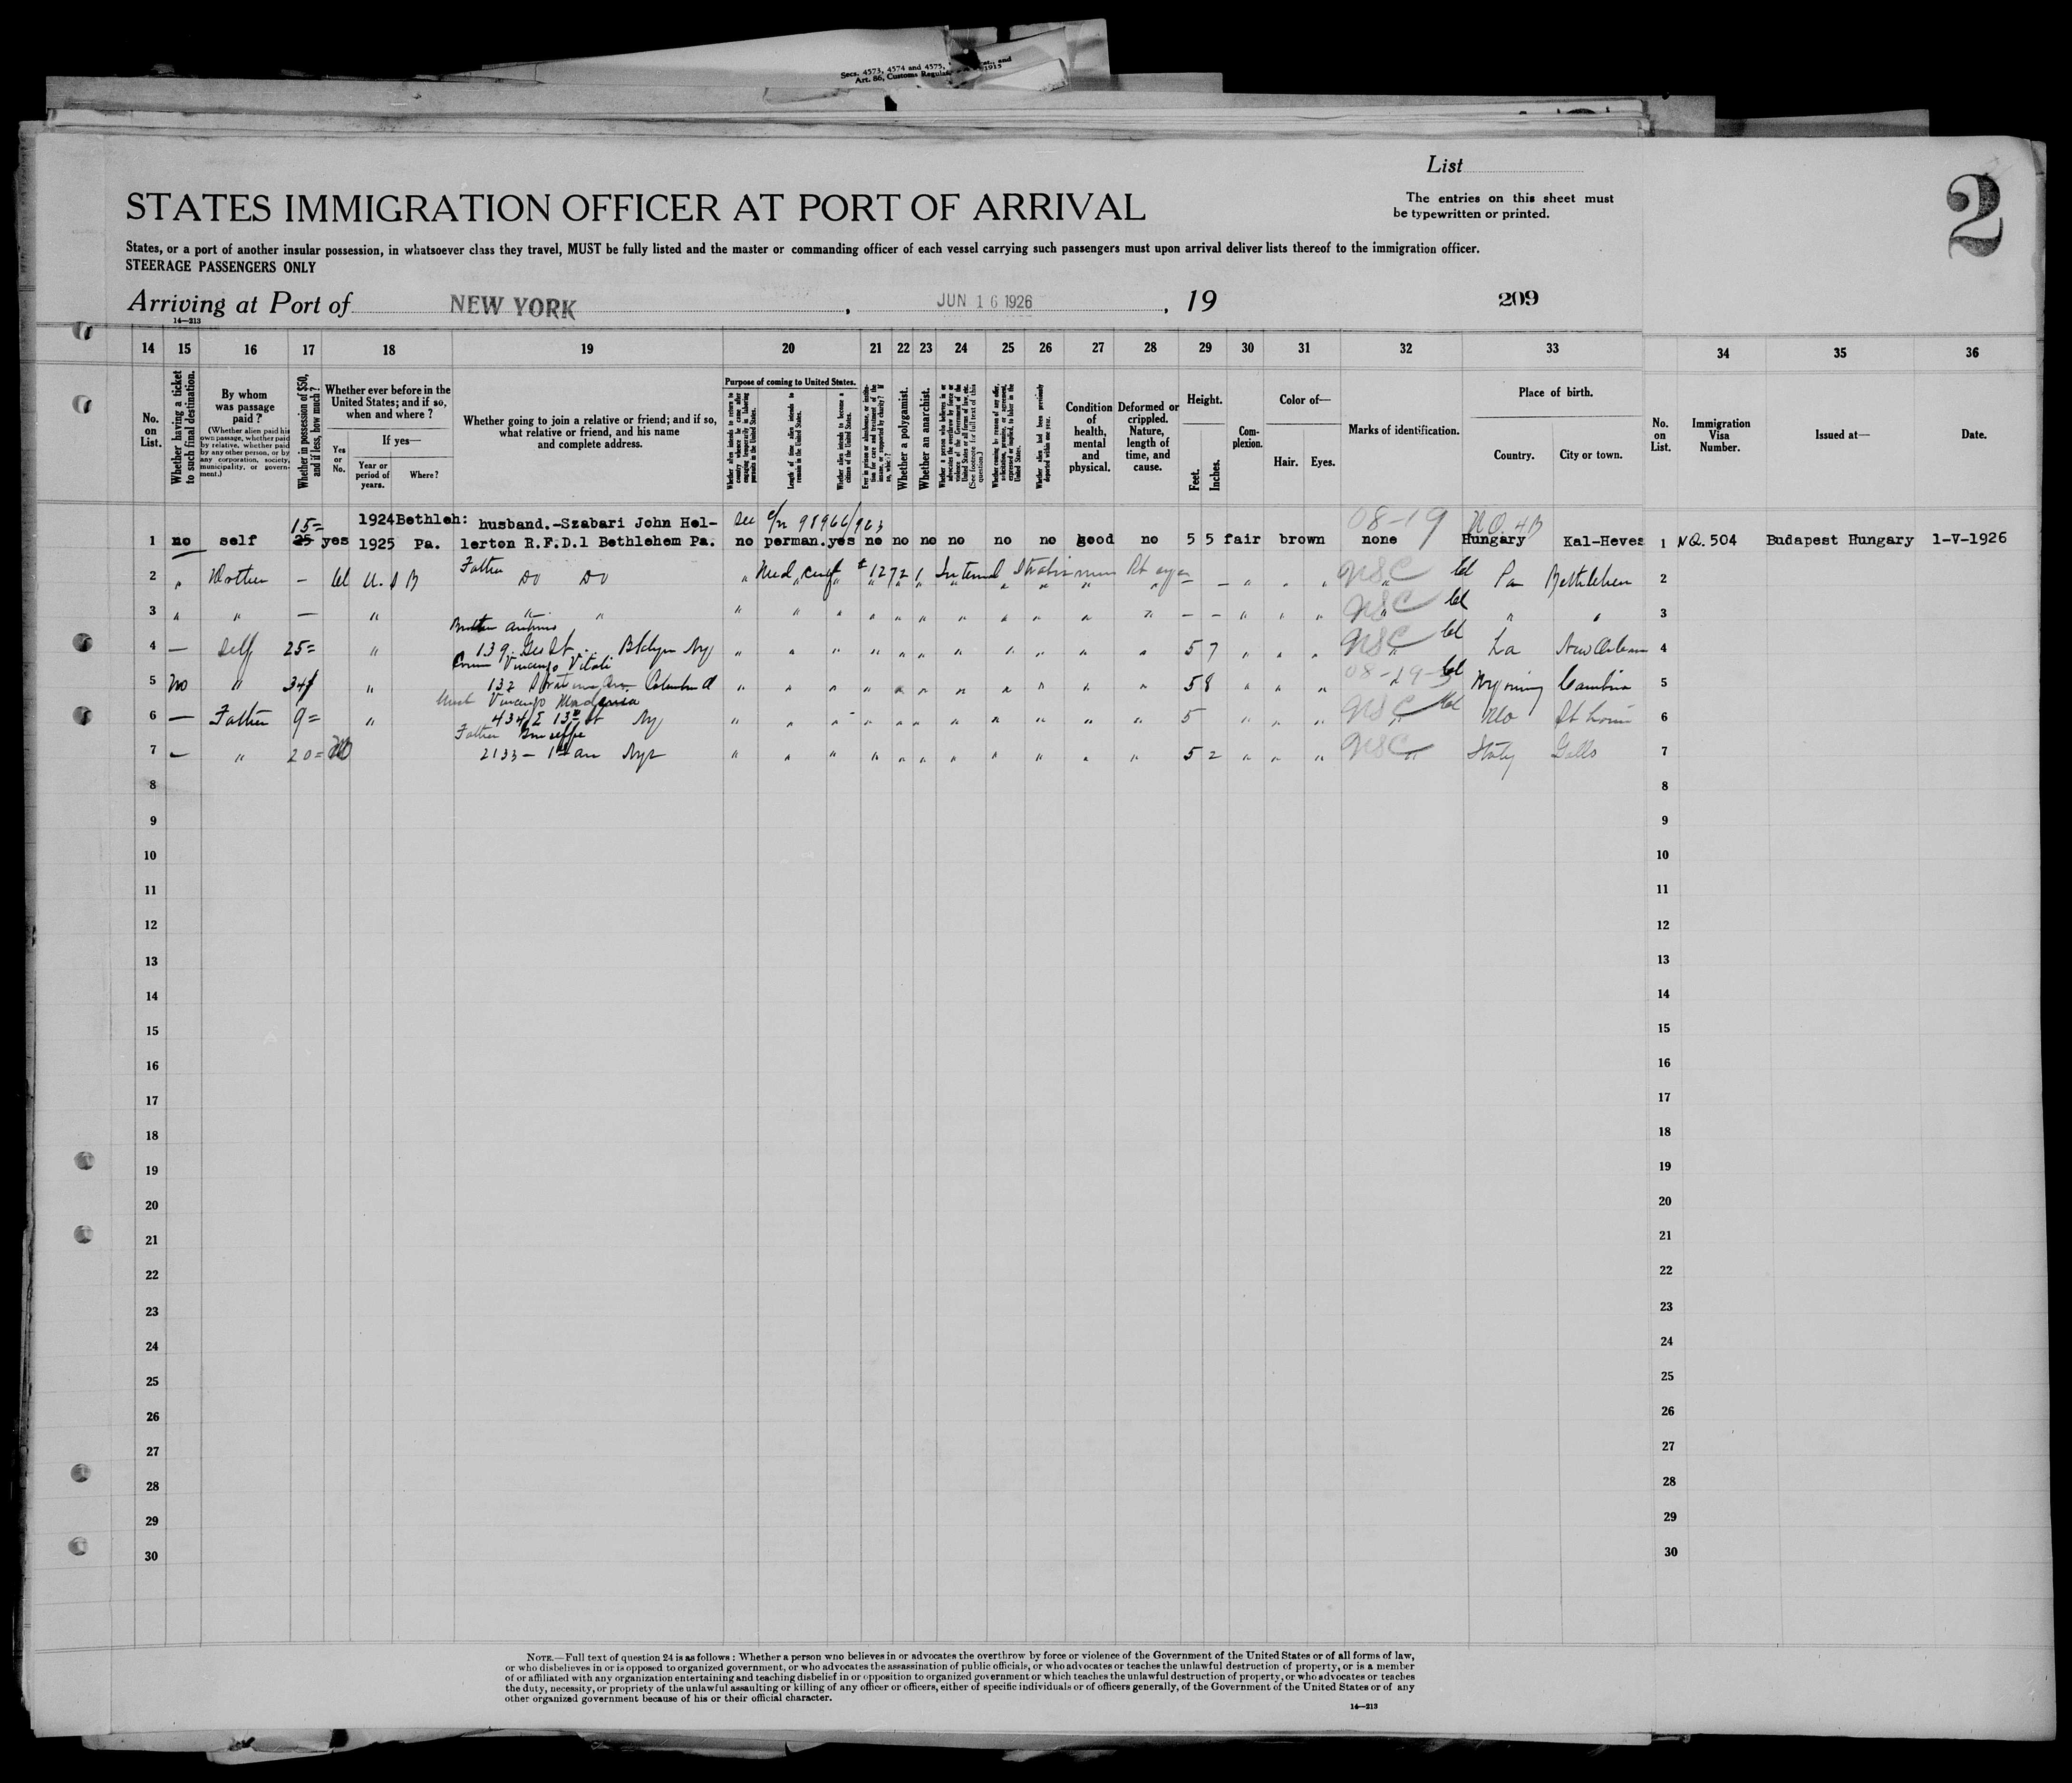 Secs. 4573, 4574 and 4575, and
Art. 86, Customs Regula 1915
List
2
The entries on this sheet must
be typewritten or printed.
STATES IMMIGRATION OFFICER AT PORT OF ARRIVAL
States, or a port of another insular possession, in whatsoever class they travel, MUST be fully listed and the master or commanding officer of each vessel carrying such passengers must upon arrival deliver lists thereof to the immigration officer.
STEERAGE PASSENGERS ONLY
Arriving at Port of NEW YORK, JUN 16 1926, 19 209
14—213
14 15 16 17 18 19 20 21 22 23 24 25 26 27 28 29 30 31 32 33 34 35 36
No. on List.
Whether having a ticket to such final destination.
By whom was passage paid?
(Whether alien paid his own passage, whether paid by relative, whether paid by any other person, or by any corporation, society, municipality, or government.)
Whether in possession of $50, and if less, how much?
Whether ever before in the United States; and if so, when and where?
Yes or No.
If yes—
Year or period of years.
Where?
Whether going to join a relative or friend; and if so, what relative or friend, and his name and complete address.
Purpose of coming to United States.
Whether alien intends to return to country whence he came after engaging temporarily in laboring pursuits in the United States.
Length of time alien intends to remain in the United States.
Whether alien intends to become a citizen of the United States.
Ever in prison or almshouse, or institution for care and treatment of the insane, or supported by charity? If so, which?
Whether a polygamist.
Whether an anarchist.
Whether a person who believes in or advocates the overthrow by force or violence of the Government of the United States or all forms of law, etc. (See footnote for full text of this question.)
Whether coming by reason of any offer, solicitation, promise, or agreement, expressed or implied, to labor in the United States.
Whether alien had been previously deported within one year.
Condition of health, mental and physical.
Deformed or crippled. Nature, length of time, and cause.
Height.
Feet. Inches.
Complexion.
Color of—
Hair. Eyes.
Marks of identification.
Place of birth.
Country. City or town.
No. on List.
Immigration Visa Number.
Issued at—
Date.
15= 1924 Bethleh: husband.-Szabari John Hel- 08-19
1 no self 25 yes 1925 Pa. lerton R.F.D.1 Bethlehem Pa. no perman. yes no no no no no no good no 5 5 fair brown none Hungary Kal-Heves 1 NQ. 504 Budapest Hungary 1-V-1926
Father
2 " Mother — U. S B Do Do " Med. cert # 12721 " NSC Pa Bethlehem 2
3 " " — " " " NSC " " 3
4 — Self 25= " 139 Brklyn Ny 5 7 NSC La New Orleans 4
Vincenzo Vitali 08-19
5 no " 34 " 132 5 8 Wyoming Cambria 5
Vincenzo
6 — Father 9= " 434 E 13th St Ny 5 NSC Mo St Louis 6
Father Giuseppe
7 — " 20= no 2133 — 1st av Nyc 5 2 NSC Italy Gallo 7
8 8
9 9
10 10
11 11
12 12
13 13
14 14
15 15
16 16
17 17
18 18
19 19
20 20
21 21
22 22
23 23
24 24
25 25
26 26
27 27
28 28
29 29
30 30
NOTE.—Full text of question 24 is as follows: Whether a person who believes in or advocates the overthrow by force or violence of the Government of the United States or of all forms of law,
or who disbelieves in or is opposed to organized government, or who advocates the assassination of public officials, or who advocates or teaches the unlawful destruction of property, or is a member
of or affiliated with any organization entertaining and teaching disbelief in or opposition to organized government or which teaches the unlawful destruction of property, or who advocates or teaches
the duty, necessity, or propriety of the unlawful assaulting or killing of any officer or officers, either of specific individuals or of officers generally, of the Government of the United States or of any
other organized government because of his or their official character.
14—213